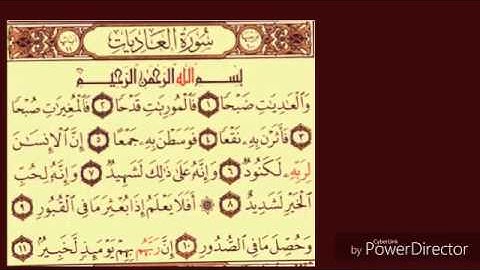 سُورَةُ الْعَادِيَاتِ
بِسْمِ اللَّهِ الرَّحْمَٰنِ الرَّحِيمِ
وَالْعَٰدِيَٰتِ ضَبْحًا ١ فَالْمُورِيَٰتِ قَدْحًا ٢ فَالْمُغِيرَٰتِ صُبْحًا
٣ فَأَثَرْنَ بِهِۦ نَقْعًا ٤ فَوَسَطْنَ بِهِۦ جَمْعًا ٥ إِنَّ الْإِنسَٰنَ
لِرَبِّهِۦ لَكَنُودٌ ٦ وَإِنَّهُۥ عَلَىٰ ذَٰلِكَ لَشَهِيدٌ ٧ وَإِنَّهُۥ لِحُبِّ
الْخَيْرِ لَشَدِيدٌ ٨ ۞ أَفَلَا يَعْلَمُ إِذَا بُعْثِرَ مَا فِي الْقُبُورِ ٩
وَحُصِّلَ مَا فِي الصُّدُورِ ١٠ إِنَّ رَبَّهُم بِهِمْ يَوْمَئِذٍ لَّخَبِيرٌ ١١
CyberLink
by PowerDirector